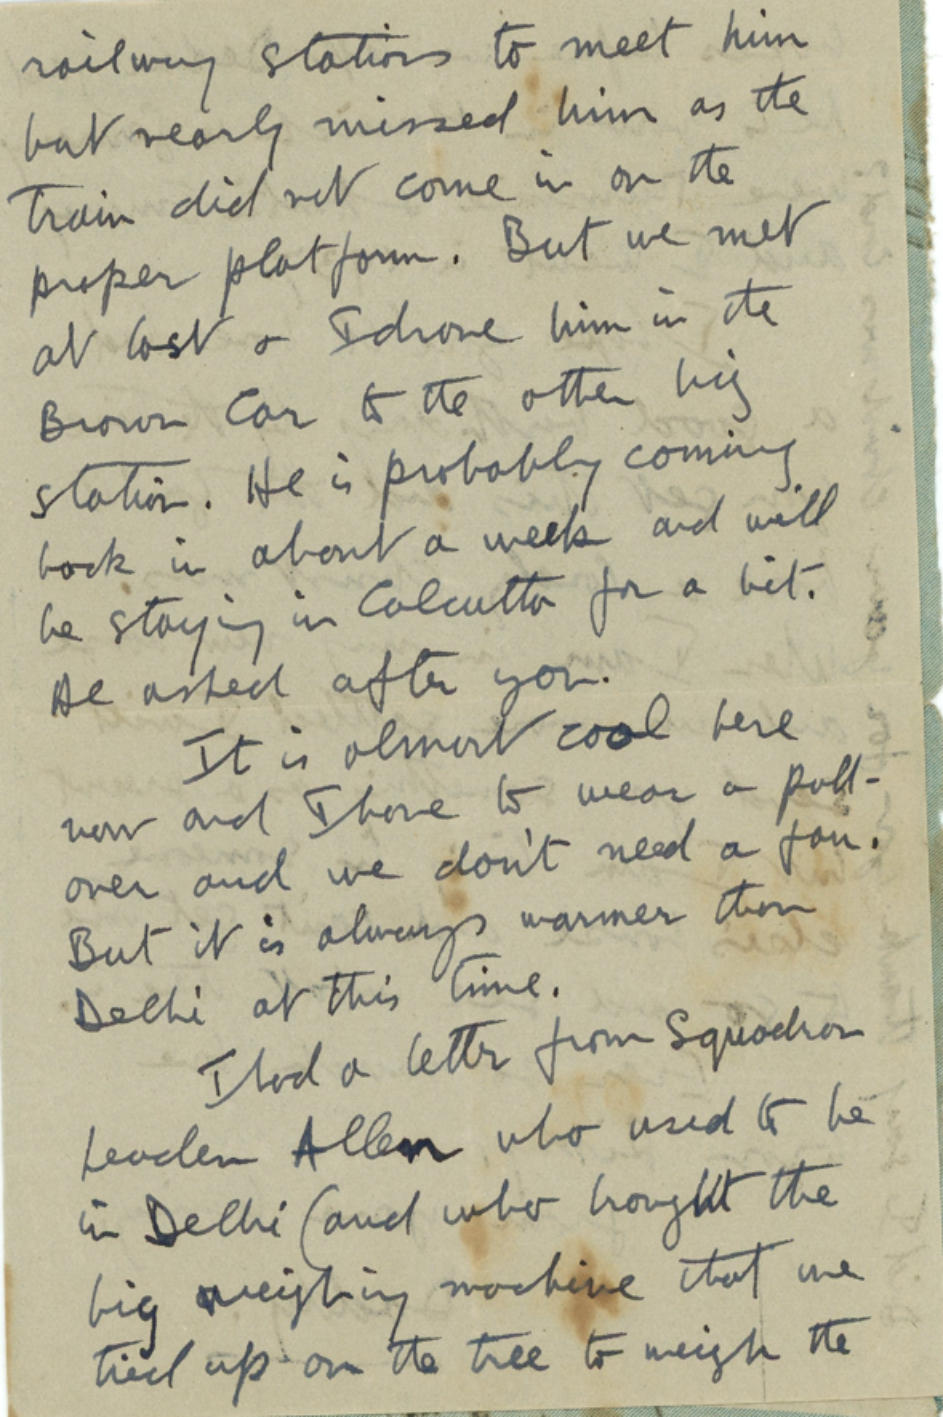 railway stations to meet him
but nearly missed him as the
train did not come in on the
proper platform. But we met
at last & I drove him in the
Brown Car to the other big
station. He is probably coming
back in about a week and will
be staying in Calcutta for a bit.
He asked after you.
It is almost cool here
now and I have to wear a pull-
over and we don't need a fan.
But it is always warmer than
Delhi at this time.
I had a letter from Squadron
Leader Allen who used to be
in Delhi (and who brought the
big weighing machine that we
tied up on the tree to weigh the